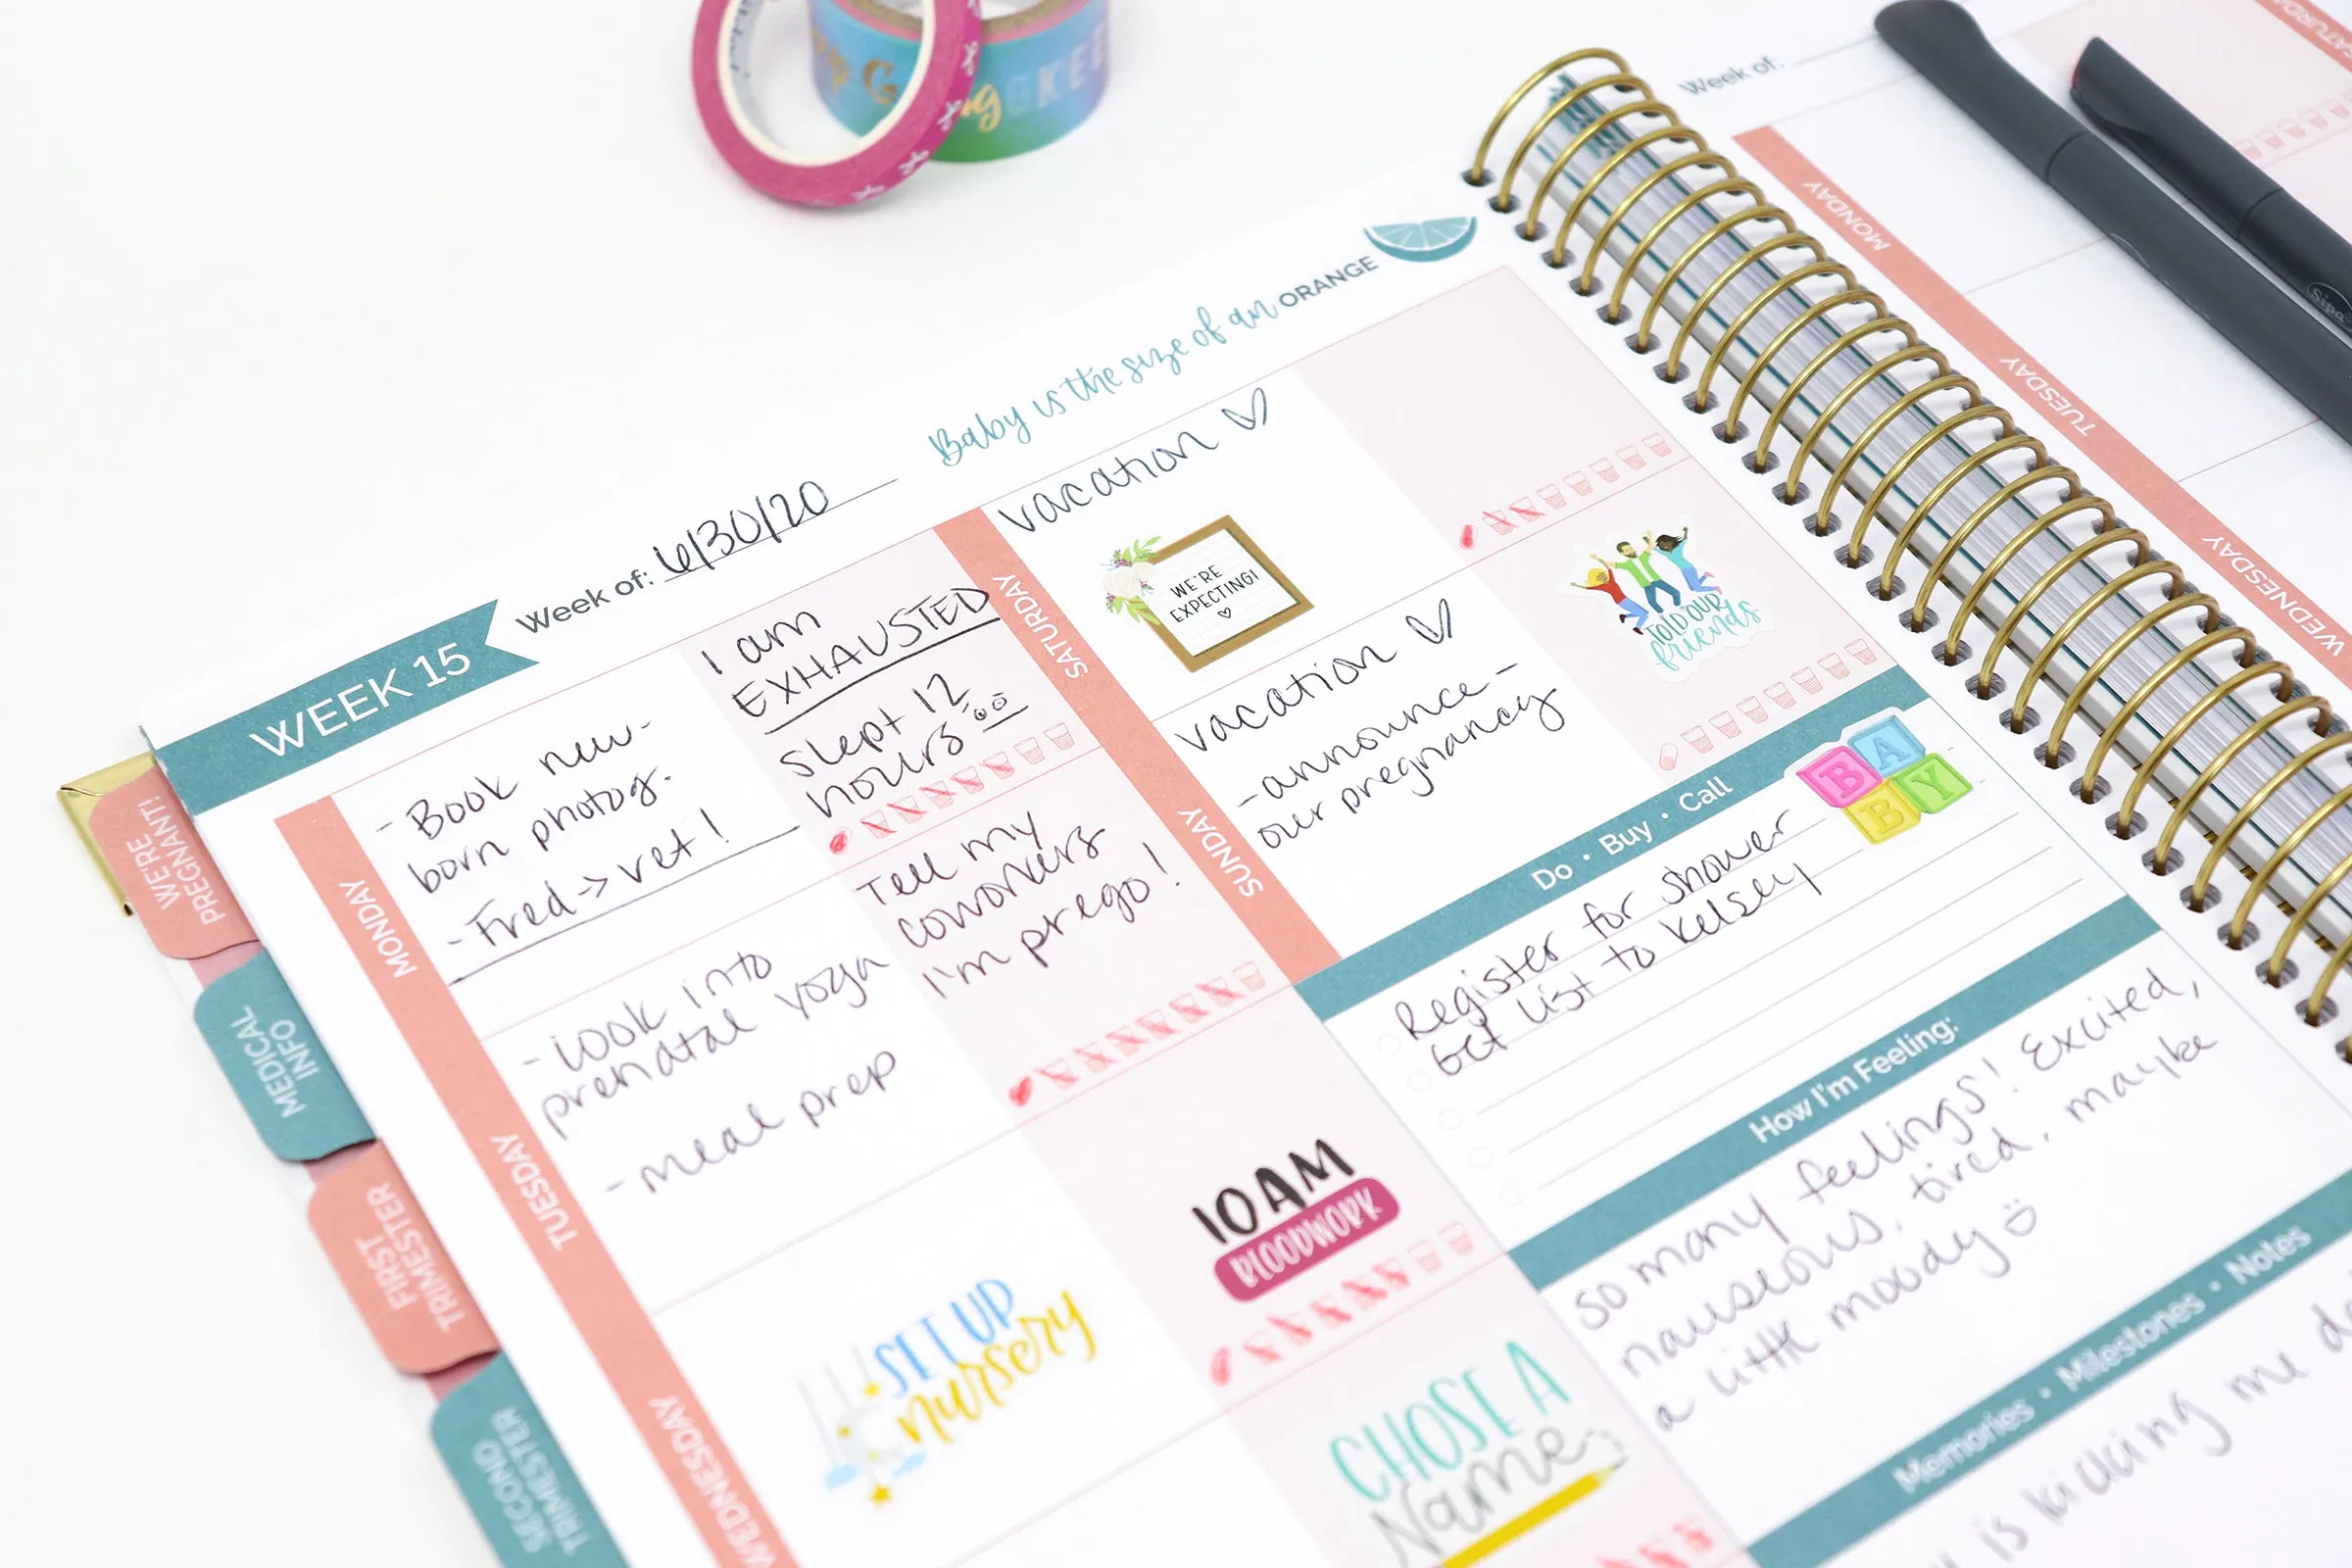 Week of:
MONDAY
TUESDAY
WEDNESDAY
Baby is the size of an ORANGE
WEEK 15
Week of: 6/30/20
WE'RE
PREGNANT!
MEDICAL
INFO
FIRST
TRIMESTER
SECOND
TRIMESTER
MONDAY
- Book new-
born photog.
- Fred -> vet!
I am
EXHAUSTED
slept 12
hours
TUESDAY
- look into
prenatal yoga
- meal prep
Tell my
coworkers
I'm prego!
WEDNESDAY
SET UP
nursery
10AM
BLOODWORK
CHOSE A
Name
SATURDAY
vacation ♡
WE'RE
EXPECTING!
♡
SUNDAY
vacation ♡
-announce-
our pregnancy
TOLD OUR
friends
Do • Buy • Call
BABY
Register for shower
get list to Kelsey
How I'm Feeling:
So many feelings! Excited,
nauseous, tired, maybe
a little moody
Memories • Milestones • Notes
is kicking me